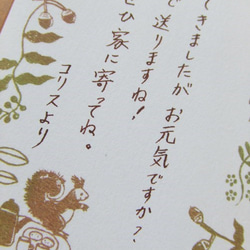 てきましたが お元気ですか?
で 送りますね!
ぜひ 家に寄ってね。
コリスより